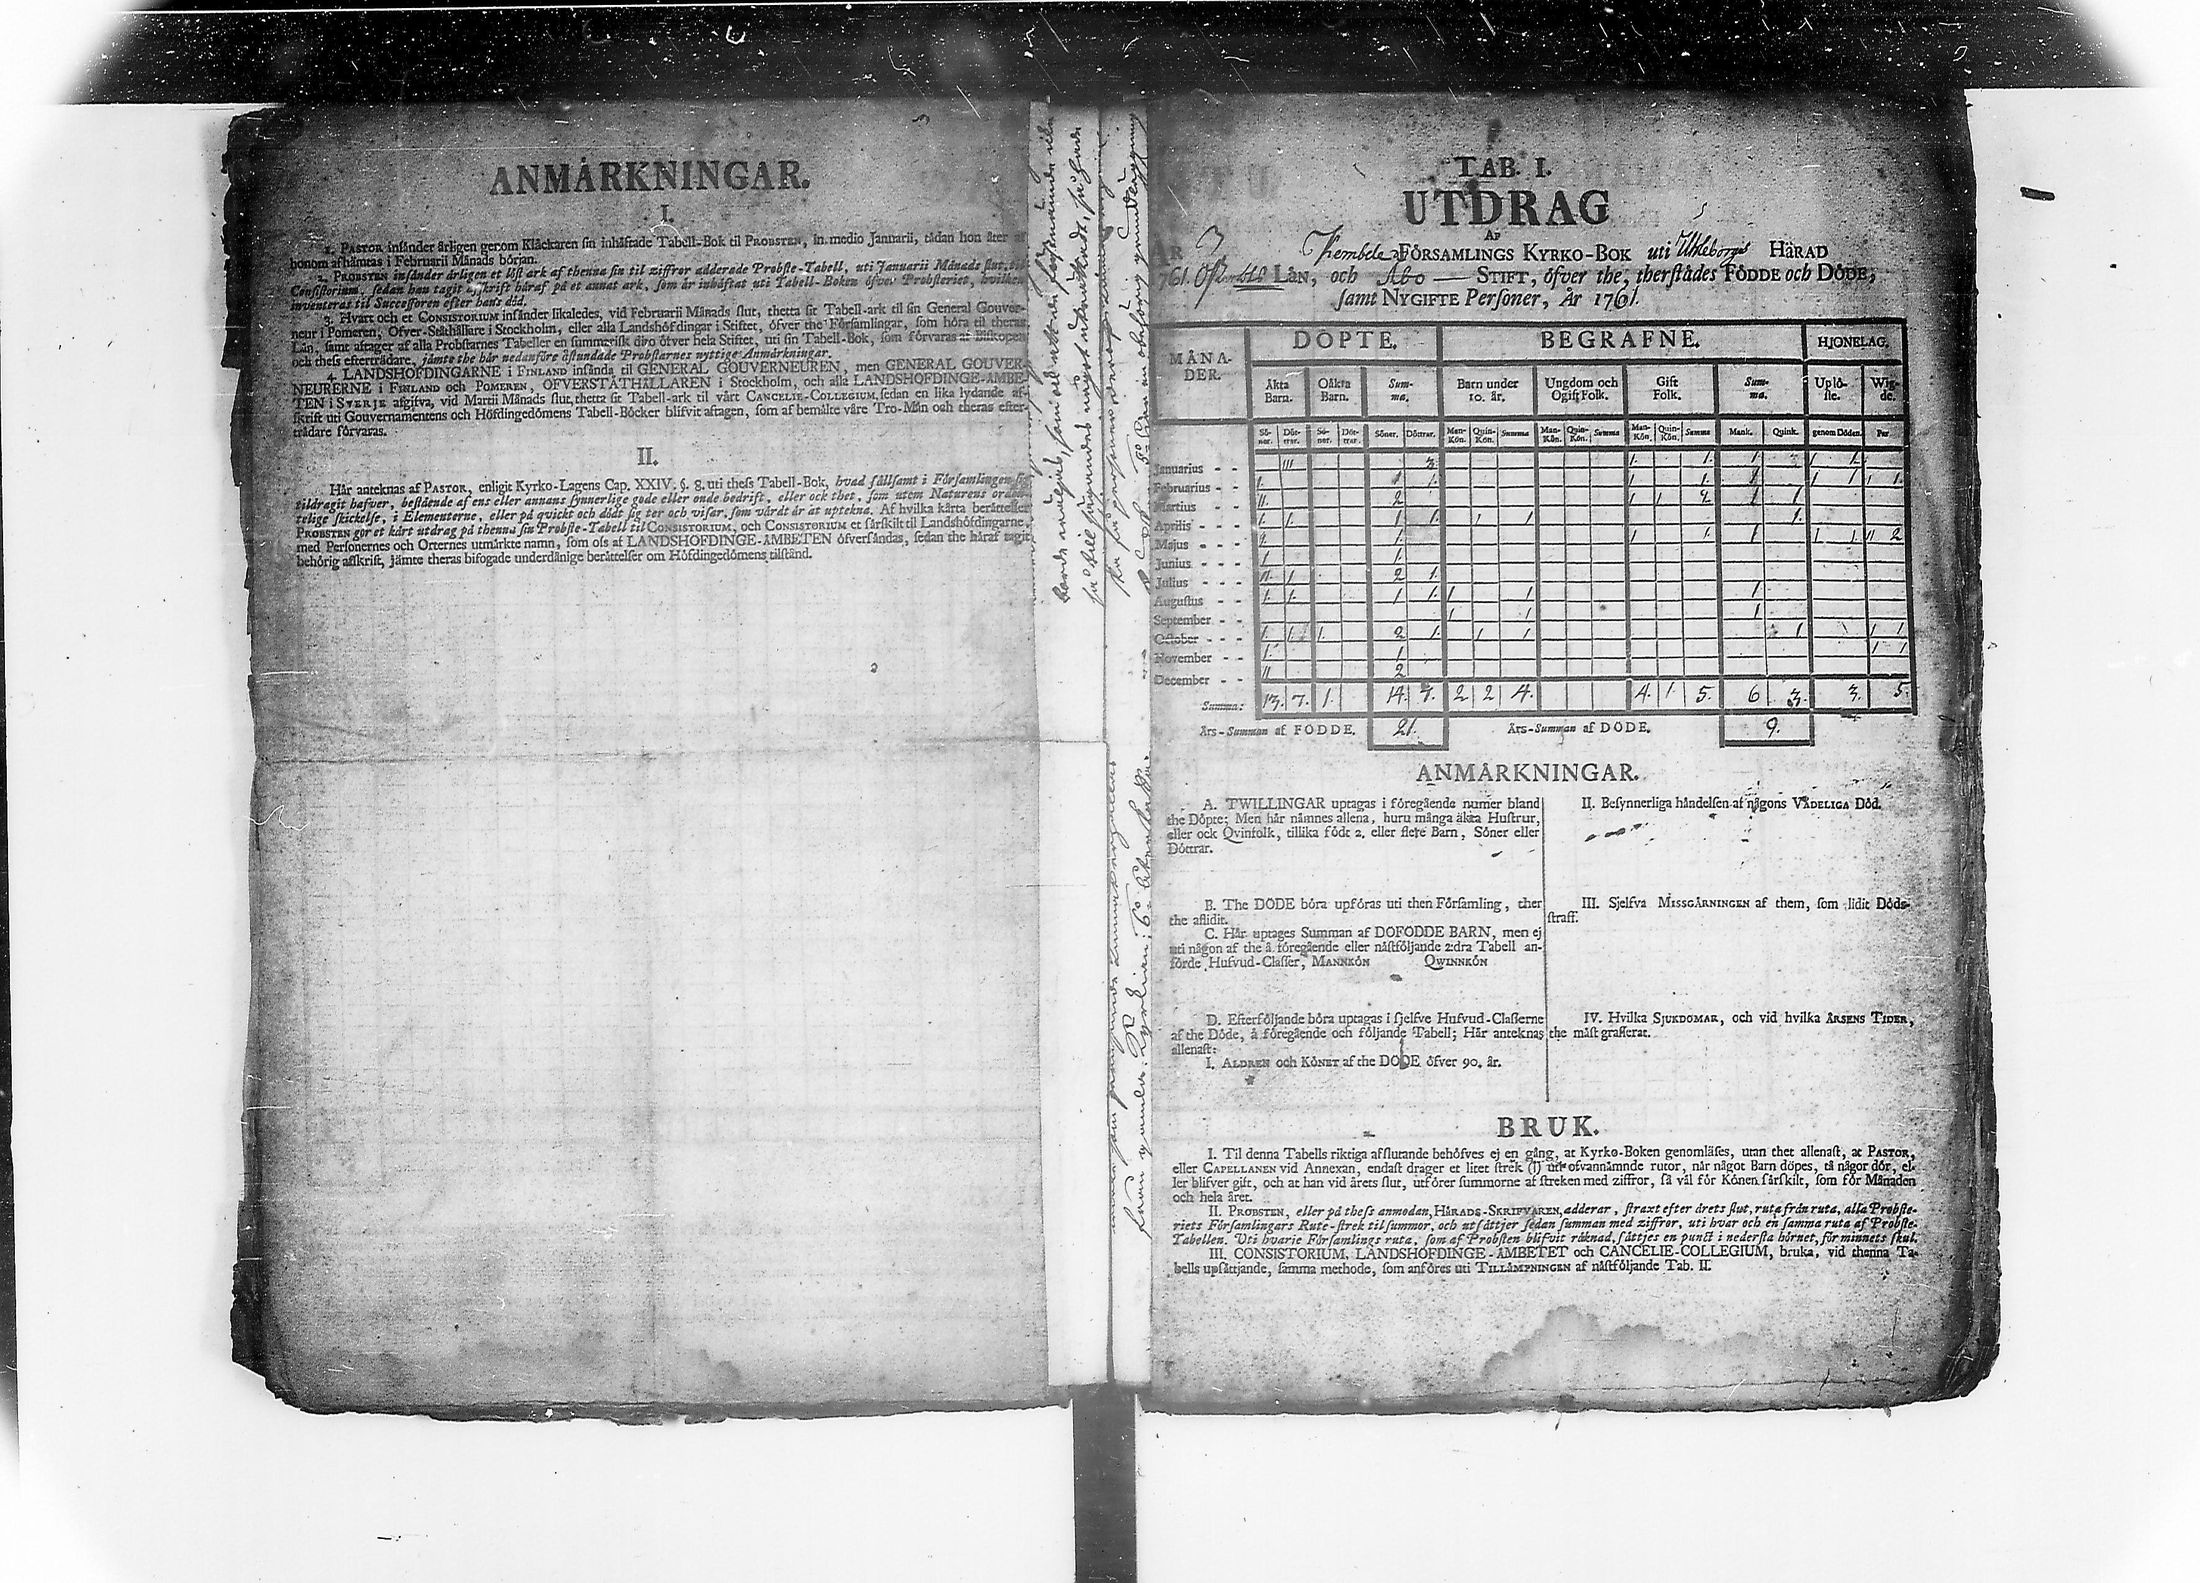 ANMÅRKNINGAR.
I.
1. PASTOR insånder årligen genom Klåckaren sin inhåftade Tabell-Bok til PROBSTEN, in medio Januarii, tådan hon åter af
honom afhåmtas i Februarii Månads början.
2. PROBSTEN insånder årligen et löst ark af thenna sin til ziffror adderade Probste-Tabell, uti Januarii Månads slut, til
Consistorium, sedan han tagit afskrift håraf på et annat ark, som år inhåftat uti Tabell-Boken öfver Probsteriet, hvilken
inventeras til Successoren efter hans död.
3. Hvart och et CONSISTORIUM insånder likaledes, vid Februarii Månads slut, thetta sit Tabell-ark til sin General Gouver-
neur i Pomeren, Öfver-Ståthållare i Stockholm, eller alla Landshöfdingar i Stiftet, öfver the Församlingar, som höra til theras
Lån, samt aftager af alla Probstarnes Tabeller en summarisk dito öfver hela Stiftet, uti sin Tabell-Bok, som förvaras af Biskopen
och thess eftertrådare, jämte the hår nedanföre åstundade Probstarnes nyttige Anmårkningar.
4. LANDSHÖFDINGARNE i FINLAND insånda til GENERAL GOUVERNEUREN, men GENERAL GOUVER-
NEURERNE i FINLAND och POMEREN, ÖFVERSTÅTHÅLLAREN i Stockholm, och alla LANDSHÖFDINGE-ÅMBE-
TEN i SVERJE afgifva, vid Martii Månads slut, thetta sit Tabell-ark til vårt CANCELIE-COLLEGIUM, sedan en lika lydande af-
skrift uti Gouvernamentens och Höfdingedömens Tabell-Böcker blifvit aftagen, som af bemålte våre Tro-Mån och theras efter-
trådare förvaras.
II.
Hår anteknas af PASTOR, enligit Kyrko-Lagens Cap. XXIV. §. 8. uti thess Tabell-Bok, hvad sållsamt i Församlingen sig
tildragit hafver, bestående af ens eller annans synnerlige gode eller onde bedrift, eller ock thet, som utom Naturens orden-
telige skickelse, i Elementerne, eller på qvickt och dödt sig ter och visar, som vårdt år at uptekna. Af hvilka kårta beråttelser
PROBSTEN gör et kårt utdrag på thenna sin Probste-Tabell til CONSISTORIUM, och CONSISTORIUM et sårskilt til Landshöfdingarne,
med Personernes och Orternes utmårkte namn, som oss af LANDSHÖFDINGE-ÅMBETEN öfversåndas, sedan the håraf tagit
behörig afskrift, jämte theras bifogade underdånige beråttelser om Höfdingedömens tilstånd.
TAB. I.
UTDRAG
AF
Kembele FÖRSAMLINGS KYRKO-BOK uti Uhleborgs HÄRAD
LÅN, och Åbo STIFT, öfver the, therstådes FÖDDE och DÖDE,
samt NYGIFTE Personer, År 1761.
MÅNA-
DER. DÖPTE. BEGRAFNE. HJONELAG.
Åkta
Barn. Oåkta
Barn. Sum-
ma. Barn under
10. år. Ungdom och
Ogift Folk. Gift
Folk. Sum-
ma. Uplö-
ste. Wig-
de.
Sö-
ner. Döt-
trar. Sö-
ner. Döt-
trar. Söner. Döttrar. Man-
Kön. Quin-
Kön. Summa Man-
Kön. Quin-
Kön. Summa Man-
Kön. Quin-
Kön. Summa Mank. Quink. genom Döden. Par
Januarius - - III 3. 1. 1. 1. 1 1.
Februarius - - 1. 1 1. 1 1. 1 1 1 1 1.
Martius - - 11. 2 1 1 2 1 1
Aprilis - - 1. 1. 1 1. 1 1 1.
Majus - - 1. 1 1. 1 1 1. 11 2
Junius - - 1 1.
Julius - - 11. 1. 2 1.
Augustus - - 1. 1. 1 1. 1 1 1
September - - 1 1 1
October - - 1. 1. 1. 2 1. 1 1 1 1 1
November - - 1. 1 1 1
December - - 11 2
Summa: 13. 7. 1. 14. 7. 2 2 4. 4. 1. 5. 6 3. 3. 5.
Års-Summan af FÖDDE. 21. Års-Summan af DÖDE. 9.
ANMÅRKNINGAR.
A. TWILLINGAR uptagas i föregående numer bland
the Döpte; Men hår nåmnes allena, huru många åkta Hustrur,
eller ock Qvinfolk, tillika födt 2. eller flere Barn, Söner eller
Döttrar.
B. The DÖDE böra upföras uti then Församling, ther
the aflidit.
C. Hår uptages Summan af DÖFÖDDE BARN, men ej
uti någon af the å föregående eller nåstföljande 2:dra Tabell an-
förde Hufvud-Classer, MANNKÖN QWINNKÖN
D. Efterföljande böra uptagas i sjelfve Hufvud-Classerne
af the Döde, å föregående och följande Tabell; Hår anteknas
allenast:
I. ALDREN och KÖNET af the DÖDE öfver 90. år.
II. Besynnerliga håndelsen af någons VÅDELIGA Död.
III. Sjelfva MISSGÅRNINGEN af them, som lidit Döds-
straff.
IV. Hvilka SJUKDOMAR, och vid hvilka ÅRSENS TIDER,
the måst grasserat.
BRUK.
I. Til denna Tabells riktiga afslutande behöfves ej en gång, at Kyrko-Boken genomlåses, utan thet allenast, at PASTOR,
eller CAPELLANEN vid Annexan, endast drager et litet strek (I) uti ofvannåmnde rutor, når något Barn döpes, tå någor dör, el-
ler blifver gift, och at han vid årets slut, utförer summorne af streken med ziffror, så vål för Könen sårskilt, som för Månaden
och hela året.
II. PROBSTEN, eller på thess anmodan, HÅRADS-SKRIFVAREN, adderar, straxt efter årets slut, ruta från ruta, alla Probste-
riets Församlingars Rute-strek til summor, och utsåttjer sedan summan med ziffror, uti hvar och en samma ruta af Probste-
Tabellen. Uti hvarje Församlings ruta, som af Probsten blifvit råknad, såttjes en punct i nedersta hörnet, för minnets skul.
III. CONSISTORIUM, LANDSHÖFDINGE-ÅMBETET och CANCELIE-COLLEGIUM, bruka, vid thenna Ta-
bells upsåttjande, samma methode, som anföres uti TILLÅMPNINGEN af nåstföljande Tab. II.